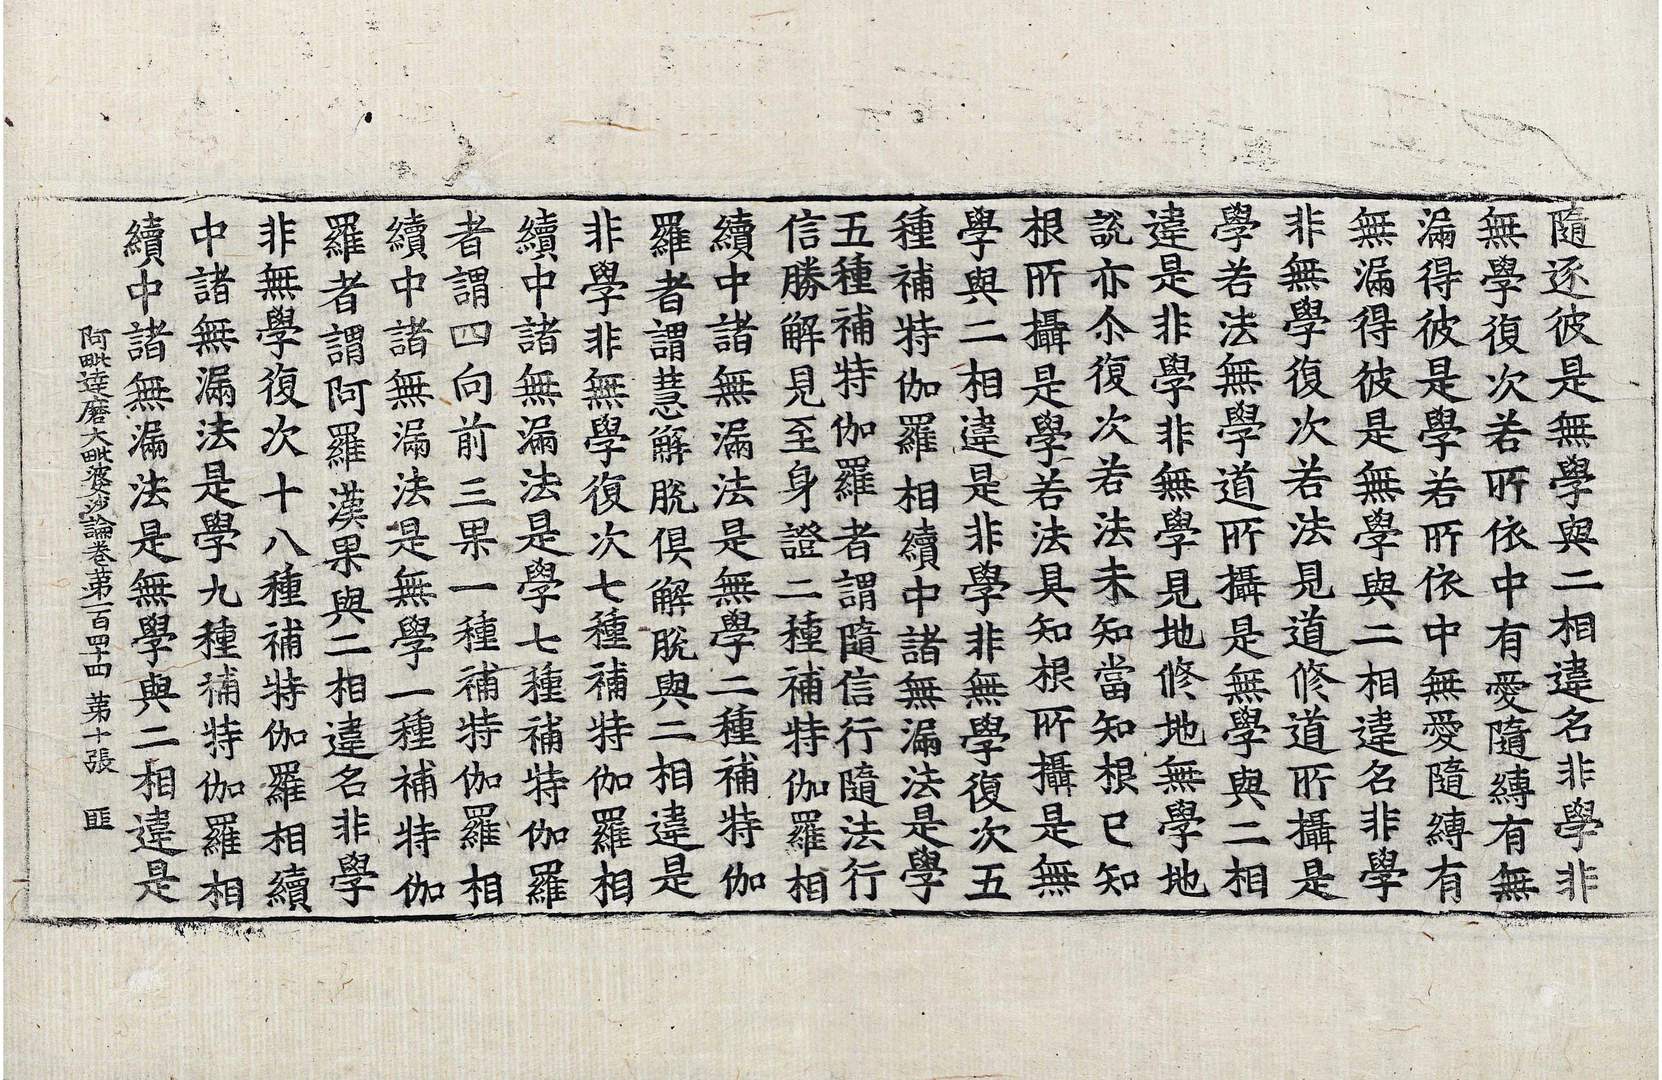 隨逐彼是無學與二相違名非學非
無學復次若所依中有愛隨縛有無
漏得彼是學若所依中無愛隨縛有
無漏得彼是無學與二相違名非學
非無學復次若法見道修道所攝是
學若法無學道所攝是無學與二相
違是非學非無學見地修地無學地
說亦尒復次若法未知當知根已知
根所攝是學若法具知根所攝是無
學與二相違是非學非無學復次五
種補特伽羅相續中諸無漏法是學
五種補特伽羅者謂隨信行隨法行
信勝解見至身證二種補特伽羅相
續中諸無漏法是無學二種補特伽
羅者謂慧解脫俱解脫與二相違是
非學非無學復次七種補特伽羅相
續中諸無漏法是學七種補特伽羅
者謂四向前三果一種補特伽羅相
續中諸無漏法是無學一種補特伽
羅者謂阿羅漢果與二相違名非學
非無學復次十八種補特伽羅相續
中諸無漏法是學九種補特伽羅相
續中諸無漏法是無學與二相違是
阿毗達磨大毗婆沙論卷苐一百四十四 苐十張 匪